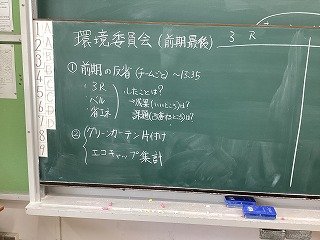 環境委員会(前期最後)
3 R
①前期の反省(チームごと)〜13:35
・3R
・ベル
・省エネ
したことは?
→成果(いいところ)は?
課題(改善ところ)は?
②グリーンカーテン片付け
エコキャップ集計
1
2
3
4
5
6
7
8
9
A
A
B
B
C
C
D
D